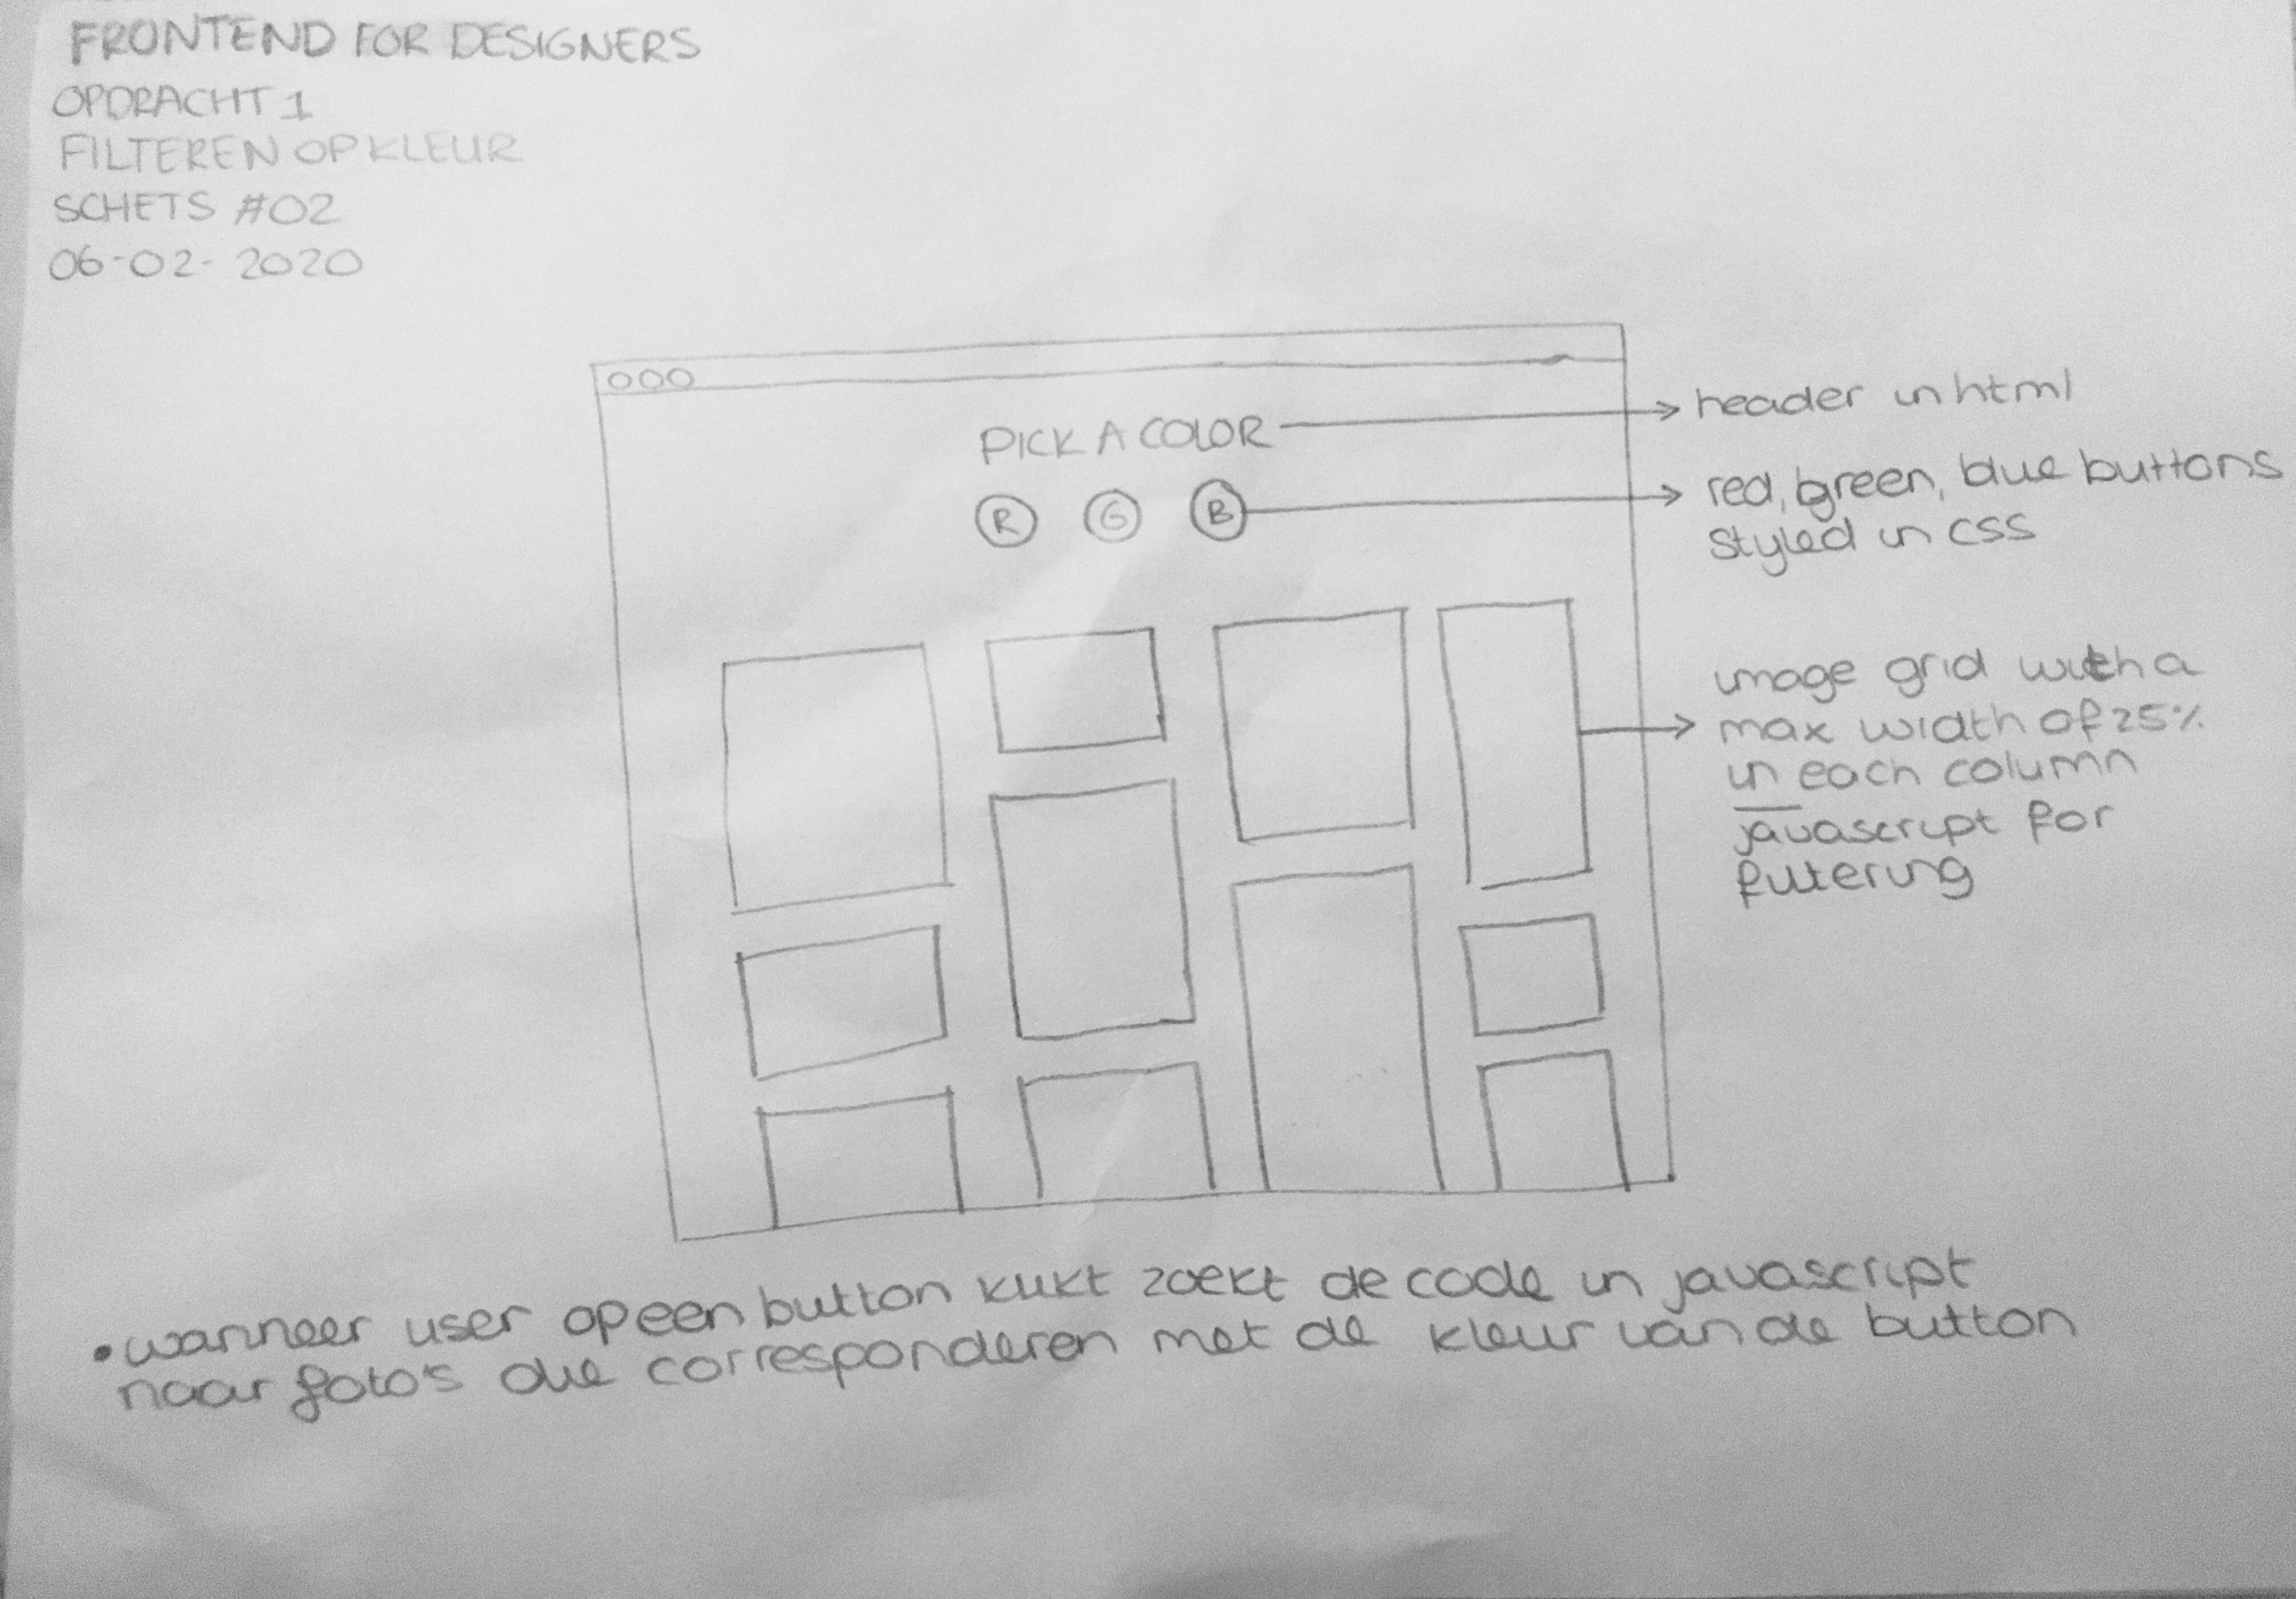 FRONTEND FOR DESIGNERS
OPDRACHT 1
FILTEREN OP KLEUR
SCHETS #02
06-02-2020
PICK A COLOR
R G B
header in html
red, green, blue buttons
styled in css
image grid with a
max width of 25%
in each column
javascript for
filtering
• wanneer user op een button klikt zoekt de code in javascript
naar foto's die corresponderen met de kleur van de button